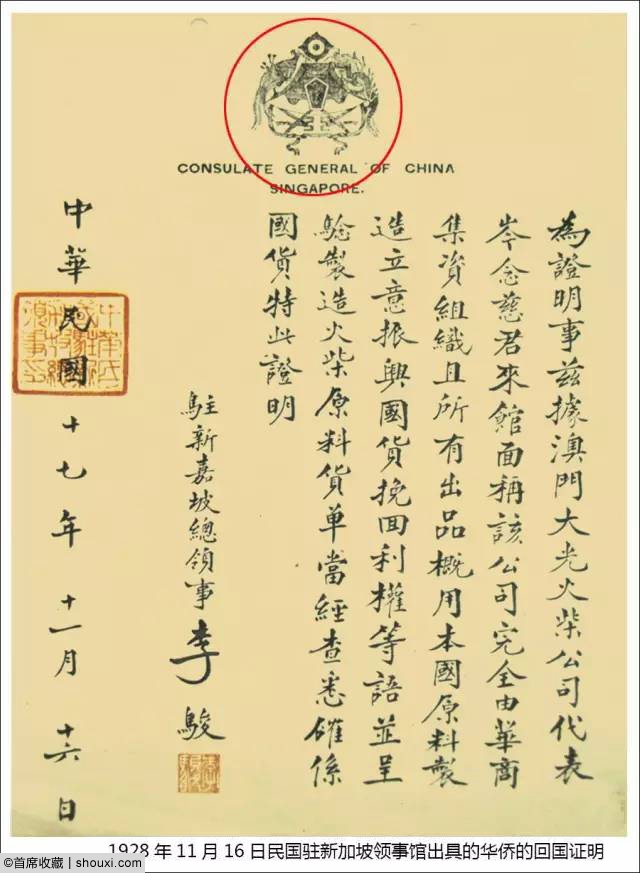 CONSULATE GENERAL OF CHINA
SINGAPORE.
為證明事茲據澳門大光火柴公司代表
岑念慈君來館面稱該公司完全由華商
集資組織且所有出品概用本國原料製
造立意振興國貨挽回利權等語並呈
騐製造火柴原料貨单當經查悉確係
國貨特此證明
駐新嘉坡總領事李駿
中華民國十七年十一月十六日
1928年11月16日民国驻新加坡领事馆出具的华侨的回国证明
©首席收藏 | shouxi.com